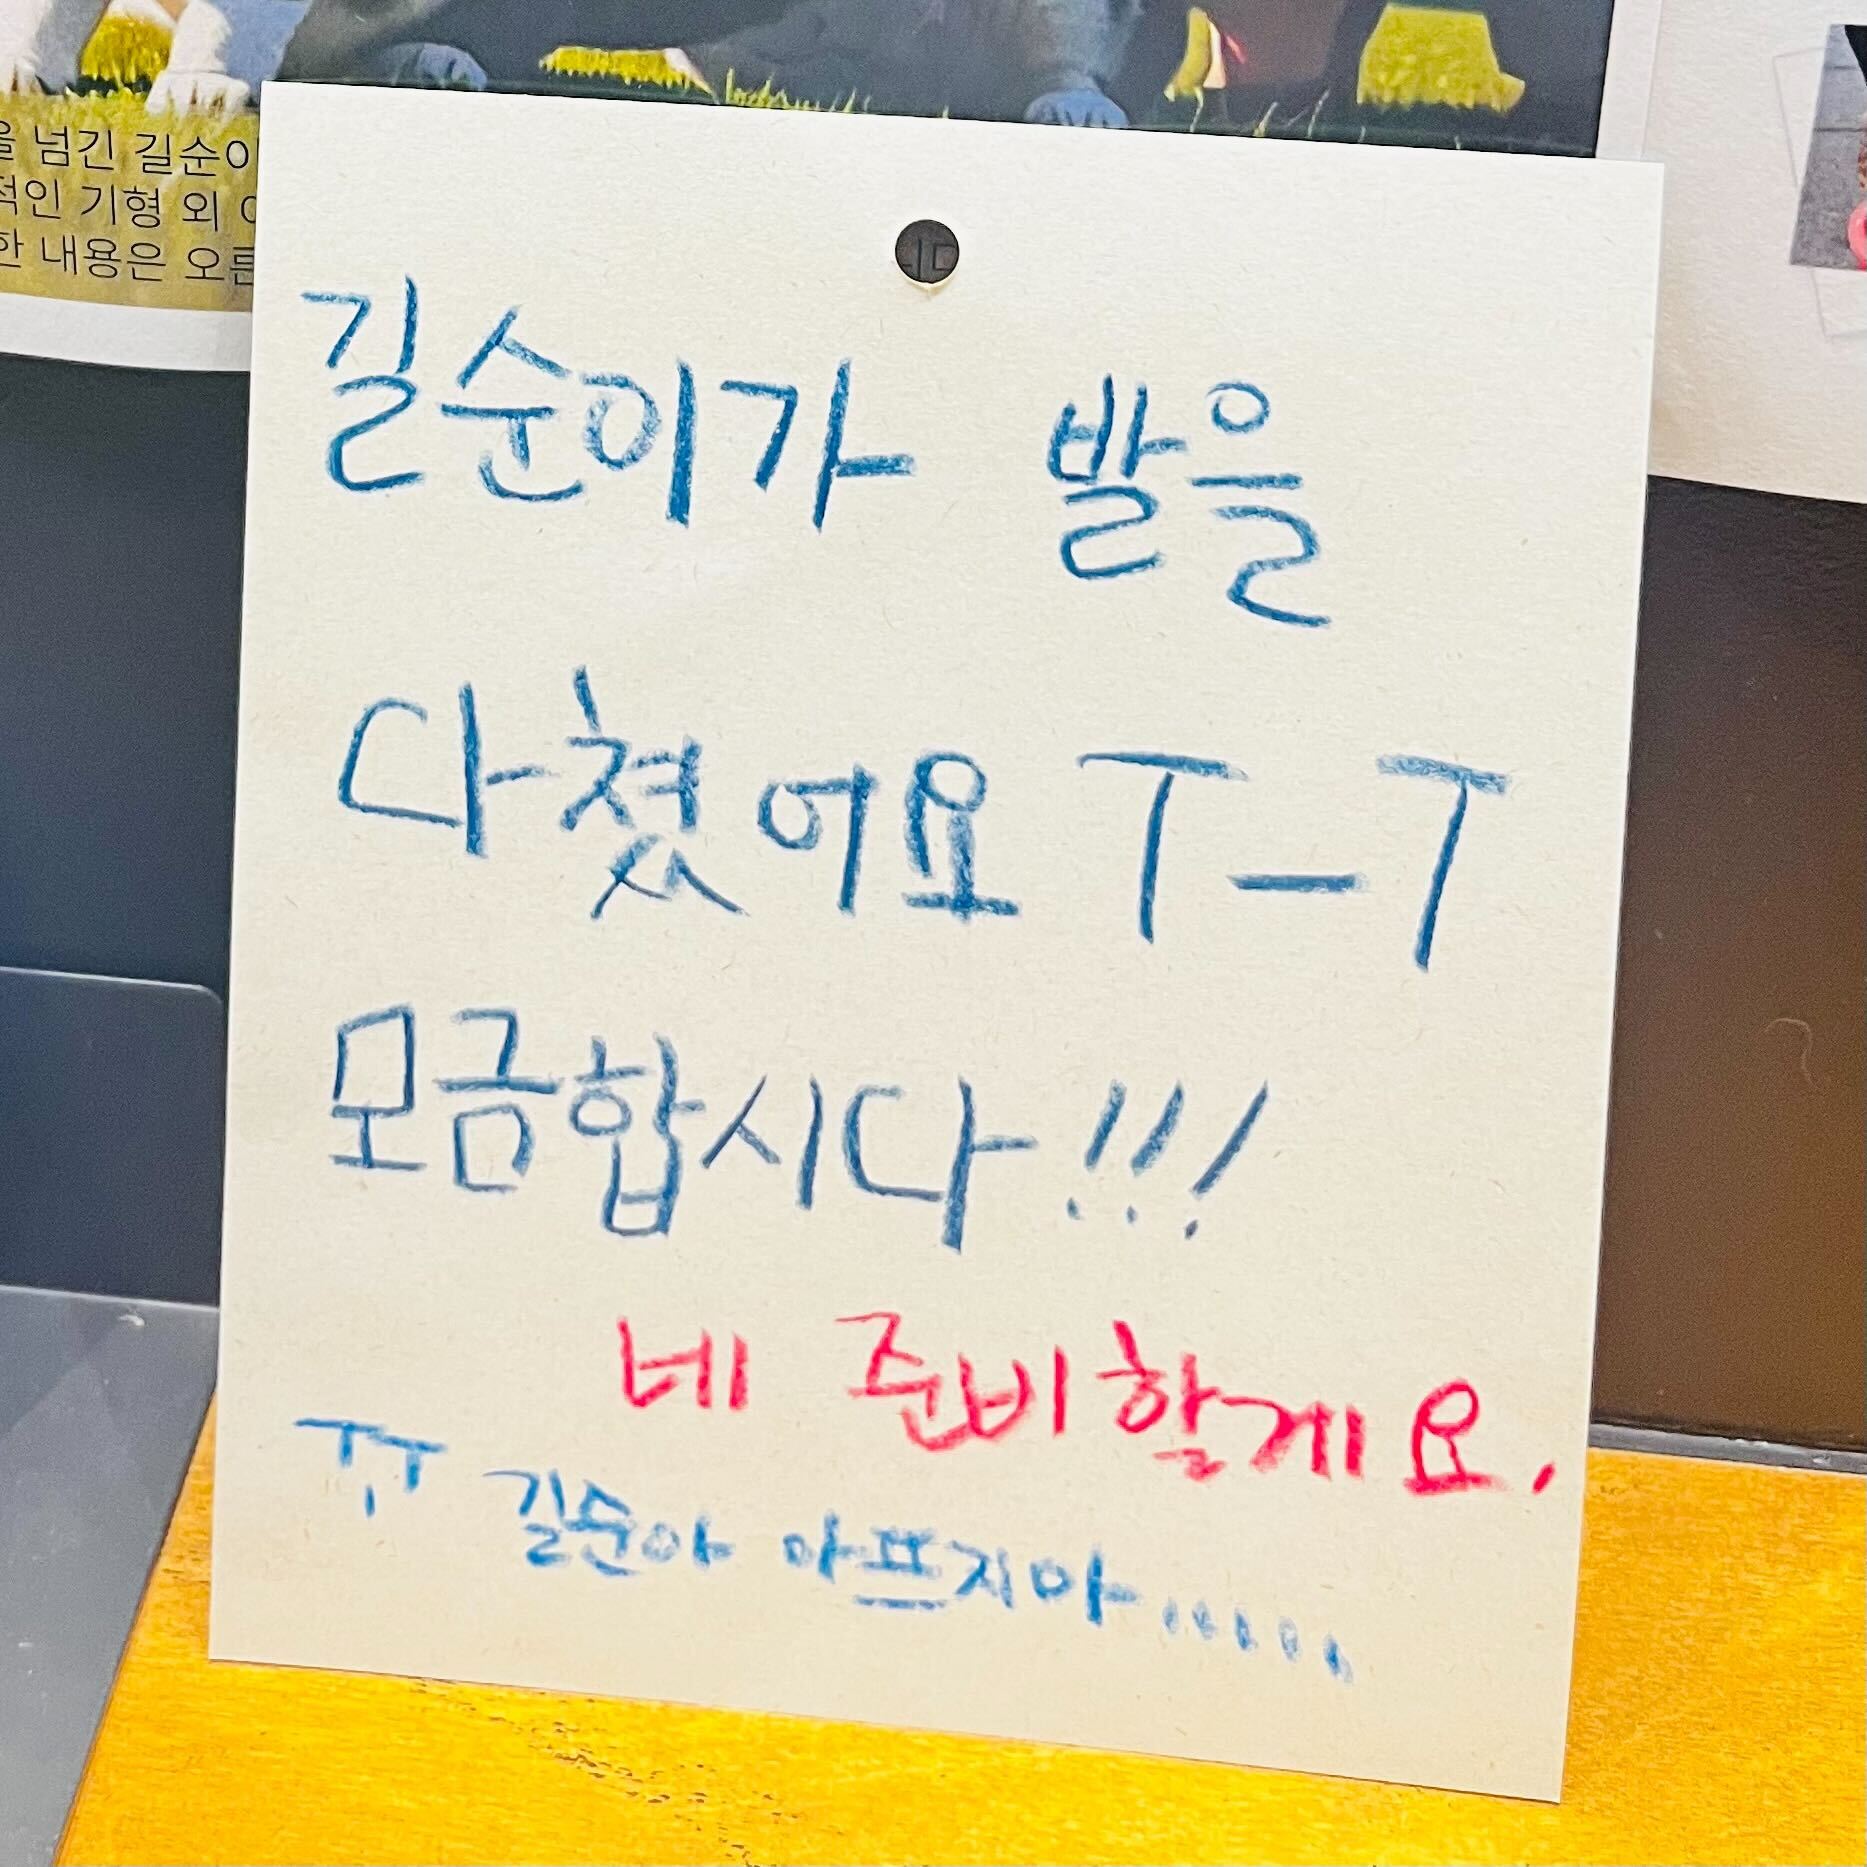 을 넘긴 길순이
적인 기형 외
한 내용은 오른
길순이가 발을
다쳤어요 T_T
모금합시다!!!
네 준비할게요.
ㅠㅠ 길순아 아쁘지마......